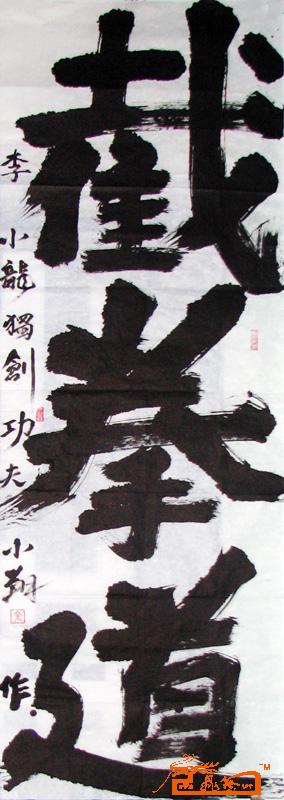 截拳道
李小龍獨創功夫 小翔 作
TM